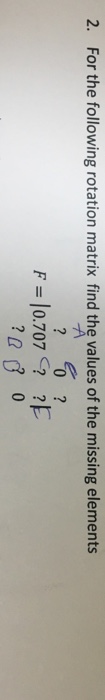 2. For the following rotation matrix find the values of the missing elements
? 0 ?
F = |0.707 ? ?|
? ? 0